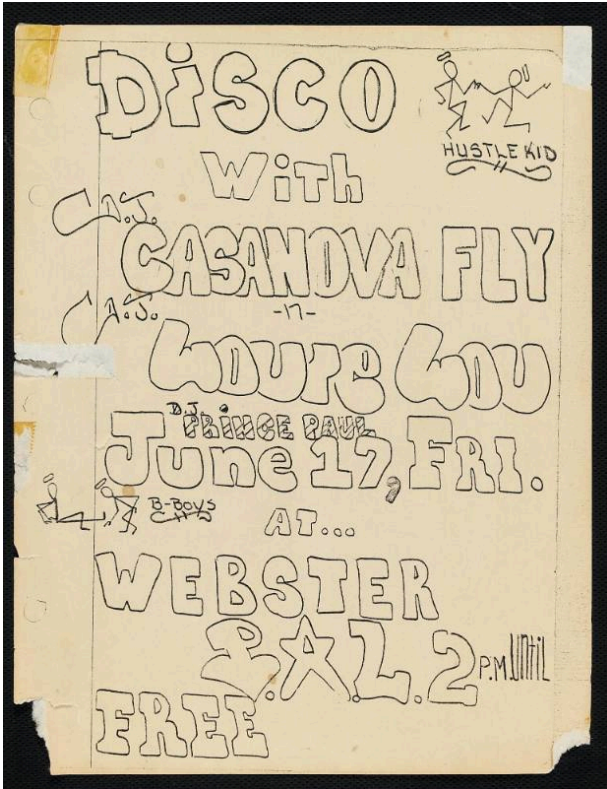 DiSCO
HUSTLE KID
WiTh
D.J.
CASANOVA FLY
-n-
D.J.
Louie Lou
D.J. PRiNCE PAUL
June 17, FRI.
B-BOYS
AT...
WEBSTER
P.A.L. 2 P.M. UNTiL
FREE.